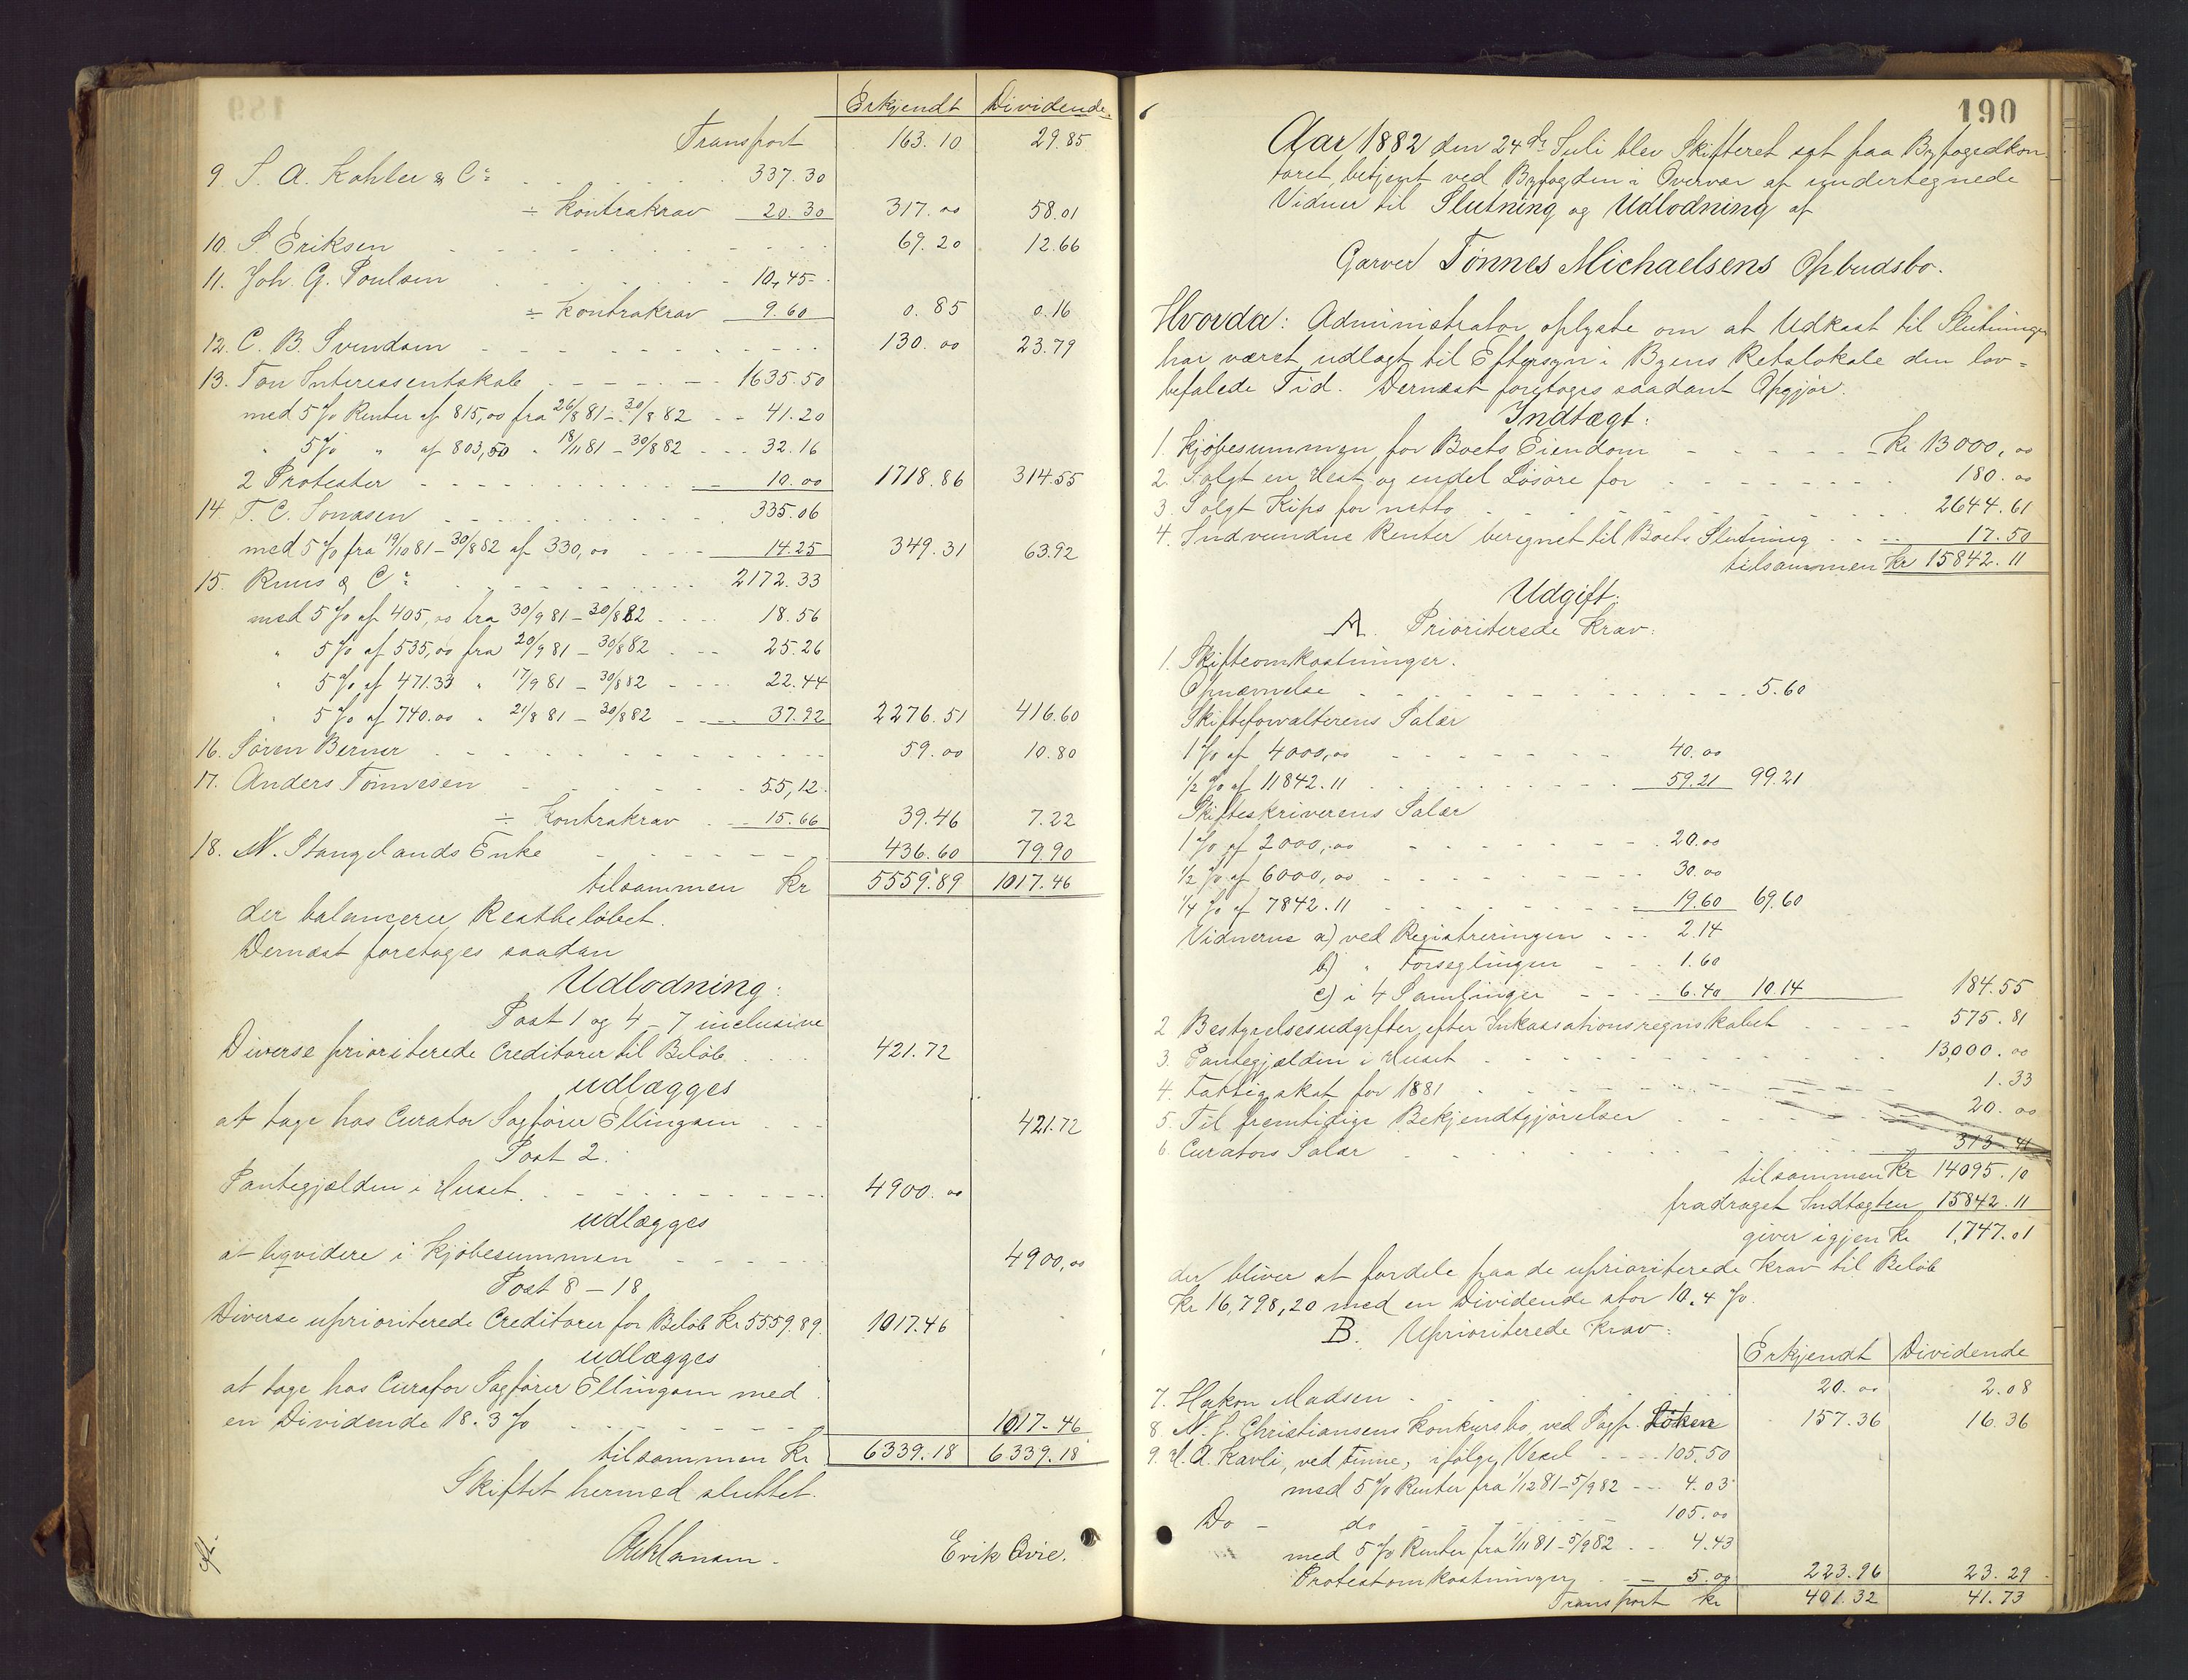 Erkjendt Dividende
Transport 163.10 29.85
9. S. A. Kohler & Co 337.30
÷ Kontrakrav 20.30 317.00 58.01
10. S. Eriksen 69.20 12.66
11. Joh. G. Poulsen 10,45
÷ Kontrakrav 9.60 0.85 0.16
12. C. B. Svendsen 130.00 23.79
13. Tou Interessentskab 1635.50
med 5 % Renter af 815,00 fra 26/8 81 - 30/8 82 41.20
" 5 % " af 803,50 " 18/11 81 - 30/8 82 32.16
2 Protester 10.00 1718.86 314.55
14. T. C. Jonasen 335.06
med 5 % fra 19/10 81 - 30/8 82 af 330,00 14.25 349.31 63.92
15. Ruus & Co 2172.33
med 5 % af 405,00 fra 30/9 81 - 30/8 82 18.56
" 5 % af 535,00 fra 20/9 81 - 30/8 82 25.26
" 5 % af 471.33 " 17/9 81 - 30/8 82 22.44
" 5 % af 740.00 " 21/8 81 - 30/8 82 37.92 2276.51 416.60
16. Sören Berner 59.00 10.80
17. Anders Tönnesen 55,12
÷ Kontrakrav 15.66 39.46 7.22
18. N. Stangelands Enke 436.60 79.90
tilsammen Kr 5559.89 1017.46
der balancerer Restbelöbet.
Dernæst foretages saadan
Udlodning:
Post 1 og 4 - 7 inclusive
Diverse prioriterede Creditorer til Belöb 421.72
udlægges
at tage hos Curator Sagförer Ellingsen 421.72
Post 2.
Pantegjælden i Huset 4900.00
udlægges
at liqvidere i Kjöbesummen 4900,00
Post 8 - 18
Diverse uprioriterede Creditorer for Belöb Kr 5559.89. 1017.46
udlægges
at tage hos Curator Sagförer Ellingsen med
en Dividende 18.3 % 1017.46
tilsammen Kr 6339.18 6339.18
Skiftet hermed sluttet.
Erik Qvie.
190
Aar 1882 den 24de Juli blev Skifteret sat paa Byfogedkon
toret, betjent ved Byfogden i Overvær af undertegnede
Vidner til Slutning og Udlodning af
Garver Tönnes Michaelsens Opbudsbo.
Hvorda: Administrator oplyste om at Udkast til Slutningen
har været udlagt til Eftersyn i Byens Retslokale den lov=
befalede Tid. Dernæst foretoges saadant Opgjör:
Indtægt:
1. Kjöbesummen for Boets Eiendom Kr 13000,00
2. Solgt en Hest og endel Lösöre for 180.00
3. Solgt Kips for netto 2644.61
4. Indvundne Renter beregnet til Boets Slutning 17.50
tilsammen Kr 15842.11
Udgift:
A. Prioriterede Krav:
1. Skifteomkostninger.
Opnævnelse 5.60
Skifteforvalterens Salær
1 % af 4000,00 40.00
1/2 % af 11842.11 59.21 99.21
Skifteskriverens Salær
1 % af 2000,00 20.00
1/2 % af 6000,00 30.00
1/4 % af 7842.11 19.60 69.60
Vidnerne a) ved Registreringen 2.14
b) " Forseglingen 1.60
c) i 4 Samlinger 6.40 10.14 184.55
2 Bestyrelsesudgifter efter Inkassationsregnskabet 575.81
3. Pantegjælden i Huset 13,000.00
4. Fattigskat for 1881 1.33
5. Til fremtidige Bekjendtgjörelser 20.00
6. Curators Salær 313.41
tilsammen Kr 14095.10
fradraget Indtægten 15842.11
giver igjen Kr 1,747.01
der bliver at fordele paa de uprioriterede Krav til Belöb
Kr 16,798,20 med en Dividende stor 10.4 %.
B. Uprioriterede Krav:
Erkjendt Dividende
7. Hakon Madsen 20.00 2.08
8. N. J. Christiansens Konkursbo ved Sagf. Löken 157.36 16.36
9. H. A. Kavli, ved Finne, ifölge Vexel 105,50
med 5 % Renter fra 1/12 81 - 5/9 82 4.03
Do - do 105.00
med 5 % Renter fra 1/11 81 - 5/9 82 4.43
Protestomkostninger 5.00 223.96 23.29
Transport Kr 401.32 41.73